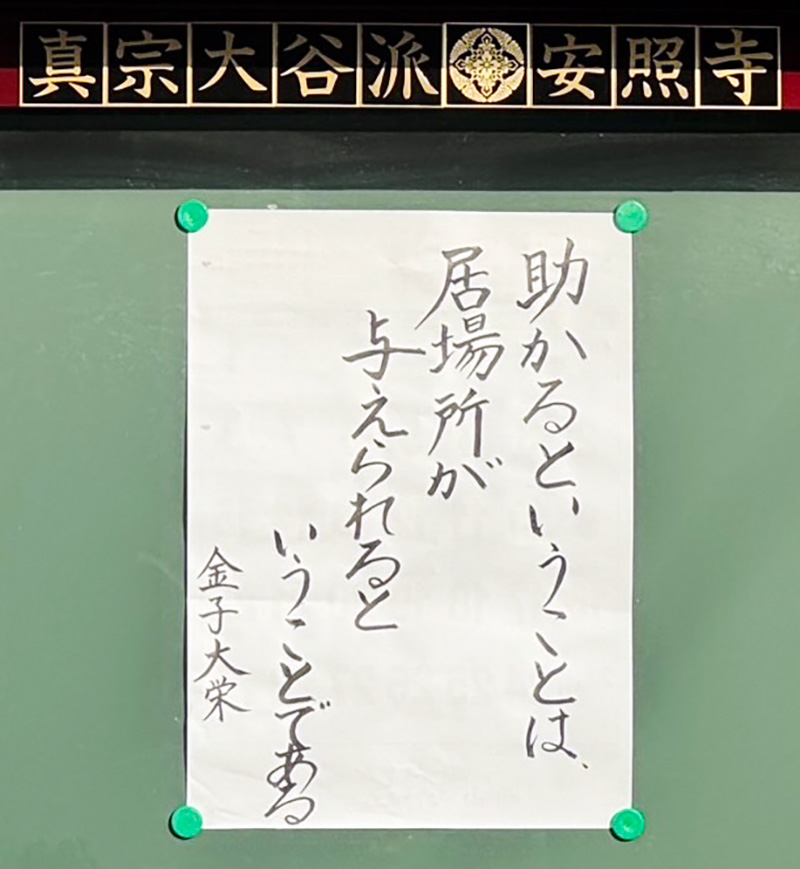 真宗大谷派 安照寺
助かるということは、
居場所が
与えられると
いうことである
金子大栄